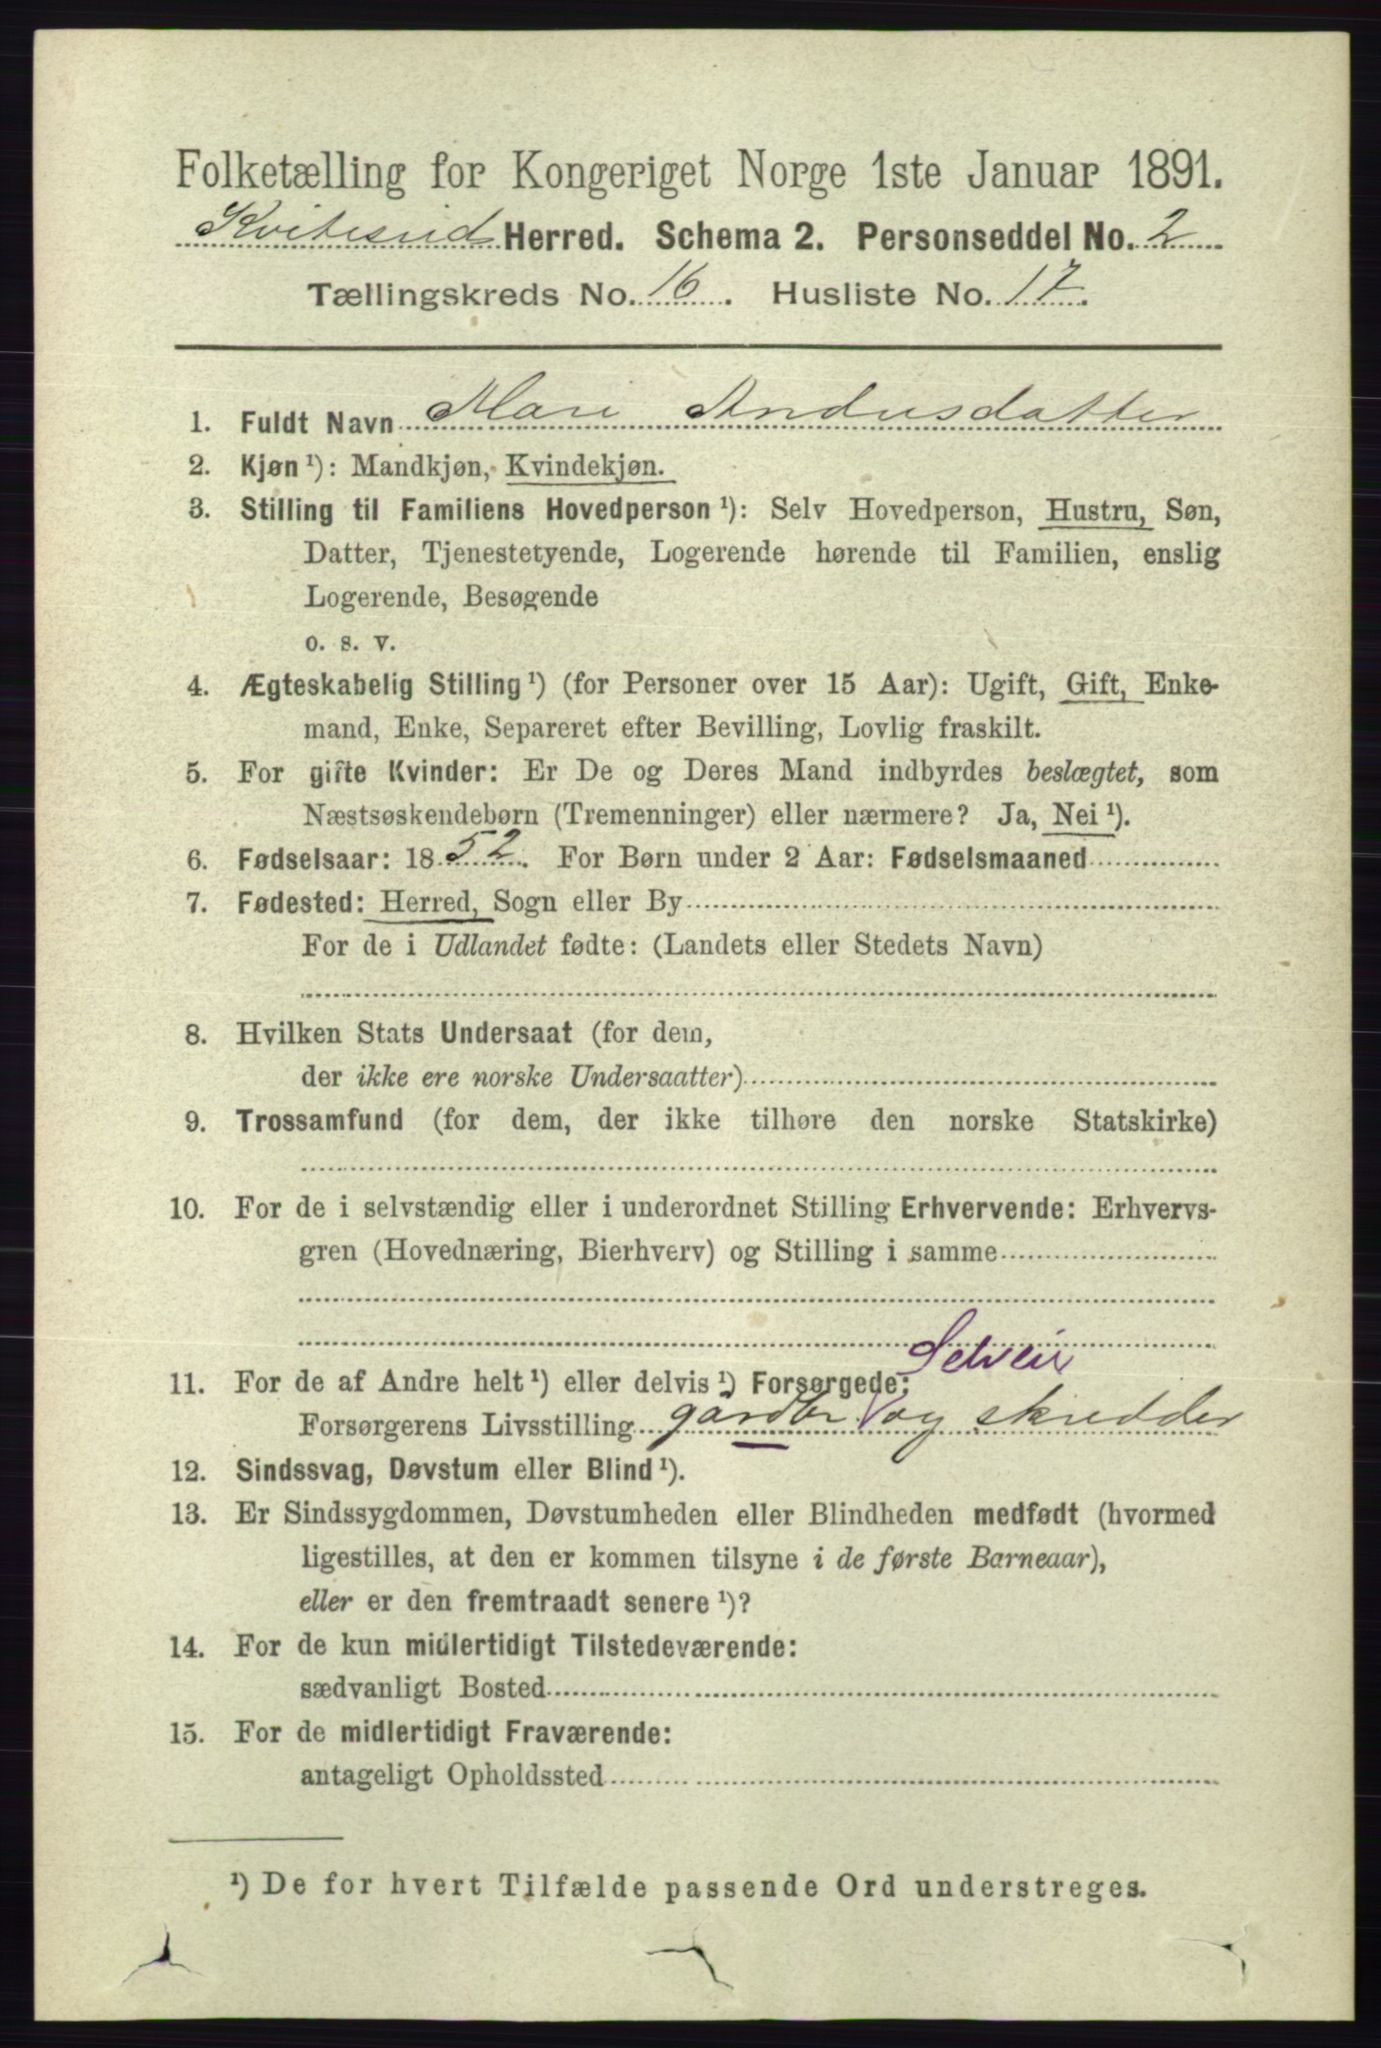 Folketælling for Kongeriget Norge 1ste Januar 1891.
Kviteseid Herred. Schema 2. Personseddel No. 2
Tællingskreds No. 16. Husliste No. 17.
1. Fuldt Navn Mari Andersdatter
2. Kjøn ¹): Mandkjøn, Kvindekjøn.
3. Stilling til Familiens Hovedperson ¹): Selv Hovedperson, Hustru, Søn,
Datter, Tjenestetyende, Logerende hørende til Familien, enslig
Logerende, Besøgende
o. s. v.
4. Ægteskabelig Stilling ¹) (for Personer over 15 Aar): Ugift, Gift, Enke-
mand, Enke, Separeret efter Bevilling, Lovlig fraskilt.
5. For gifte Kvinder: Er De og Deres Mand indbyrdes beslægtet, som
Næstsøskendebørn (Tremenninger) eller nærmere? Ja, Nei ¹).
6. Fødselsaar: 1852. For Børn under 2 Aar: Fødselsmaaned
7. Fødested: Herred, Sogn eller By
For de i Udlandet fødte: (Landets eller Stedets Navn)
8. Hvilken Stats Undersaat (for dem,
der ikke ere norske Undersaatter)
9. Trossamfund (for dem, der ikke tilhøre den norske Statskirke)
10. For de i selvstændig eller i underordnet Stilling Erhvervende: Erhvervs-
gren (Hovednæring, Bierhverv) og Stilling i samme
Selveier
11. For de af Andre helt ¹) eller delvis ¹) Forsørgede:
Forsørgerens Livsstilling gårdbr og skredder
12. Sindssvag, Døvstum eller Blind ¹).
13. Er Sindssygdommen, Døvstumheden eller Blindheden medfødt (hvormed
ligestilles, at den er kommen tilsyne i de første Barneaar),
eller er den fremtraadt senere ¹)?
14. For de kun midlertidigt Tilstedeværende:
sædvanligt Bosted
15. For de midlertidigt Fraværende:
antageligt Opholdssted
¹) De for hvert Tilfælde passende Ord understreges.